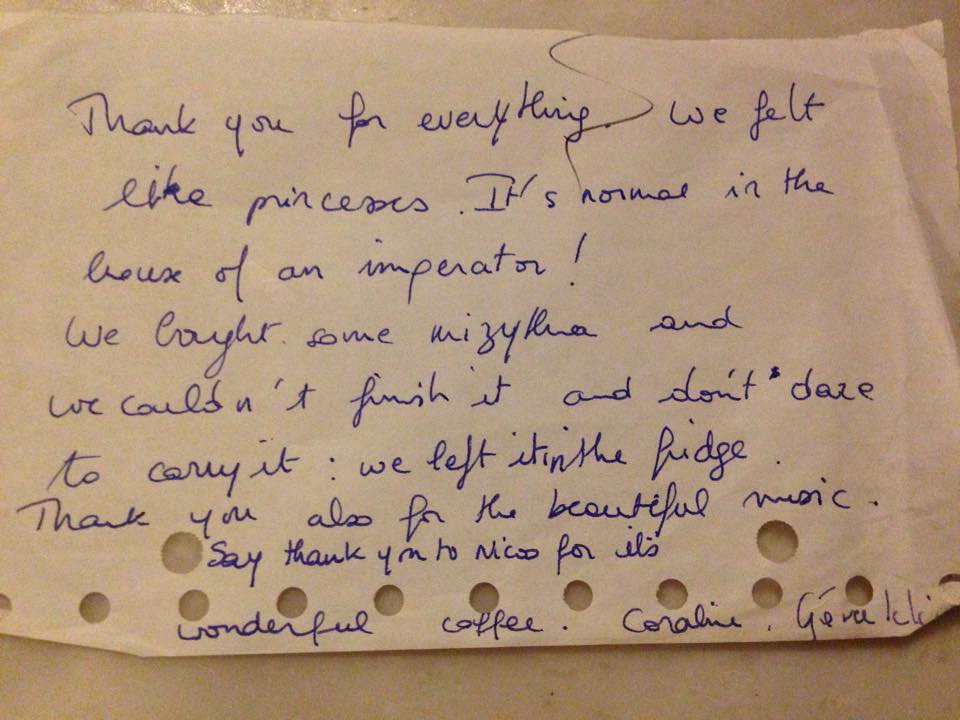 Thank you for everything. We felt
like princesses. It's normal in the
house of an imperator!
We bought some mizythra and
we couldn't finish it and don't dare
to carry it : we left it in the fridge.
Thank you also for the beautiful music.
Say thank you to Nicos for it's
wonderful coffee. Coraline.